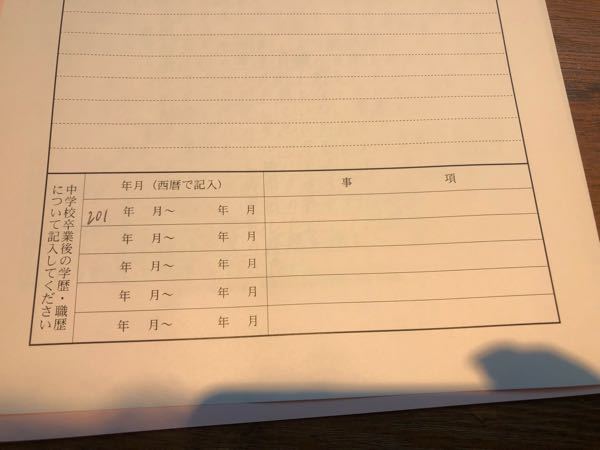 中学校卒業後の学歴・職歴
について記入してください
年月（西暦で記入） 事 項
201 年 月〜 年 月
年 月〜 年 月
年 月〜 年 月
年 月〜 年 月
年 月〜 年 月